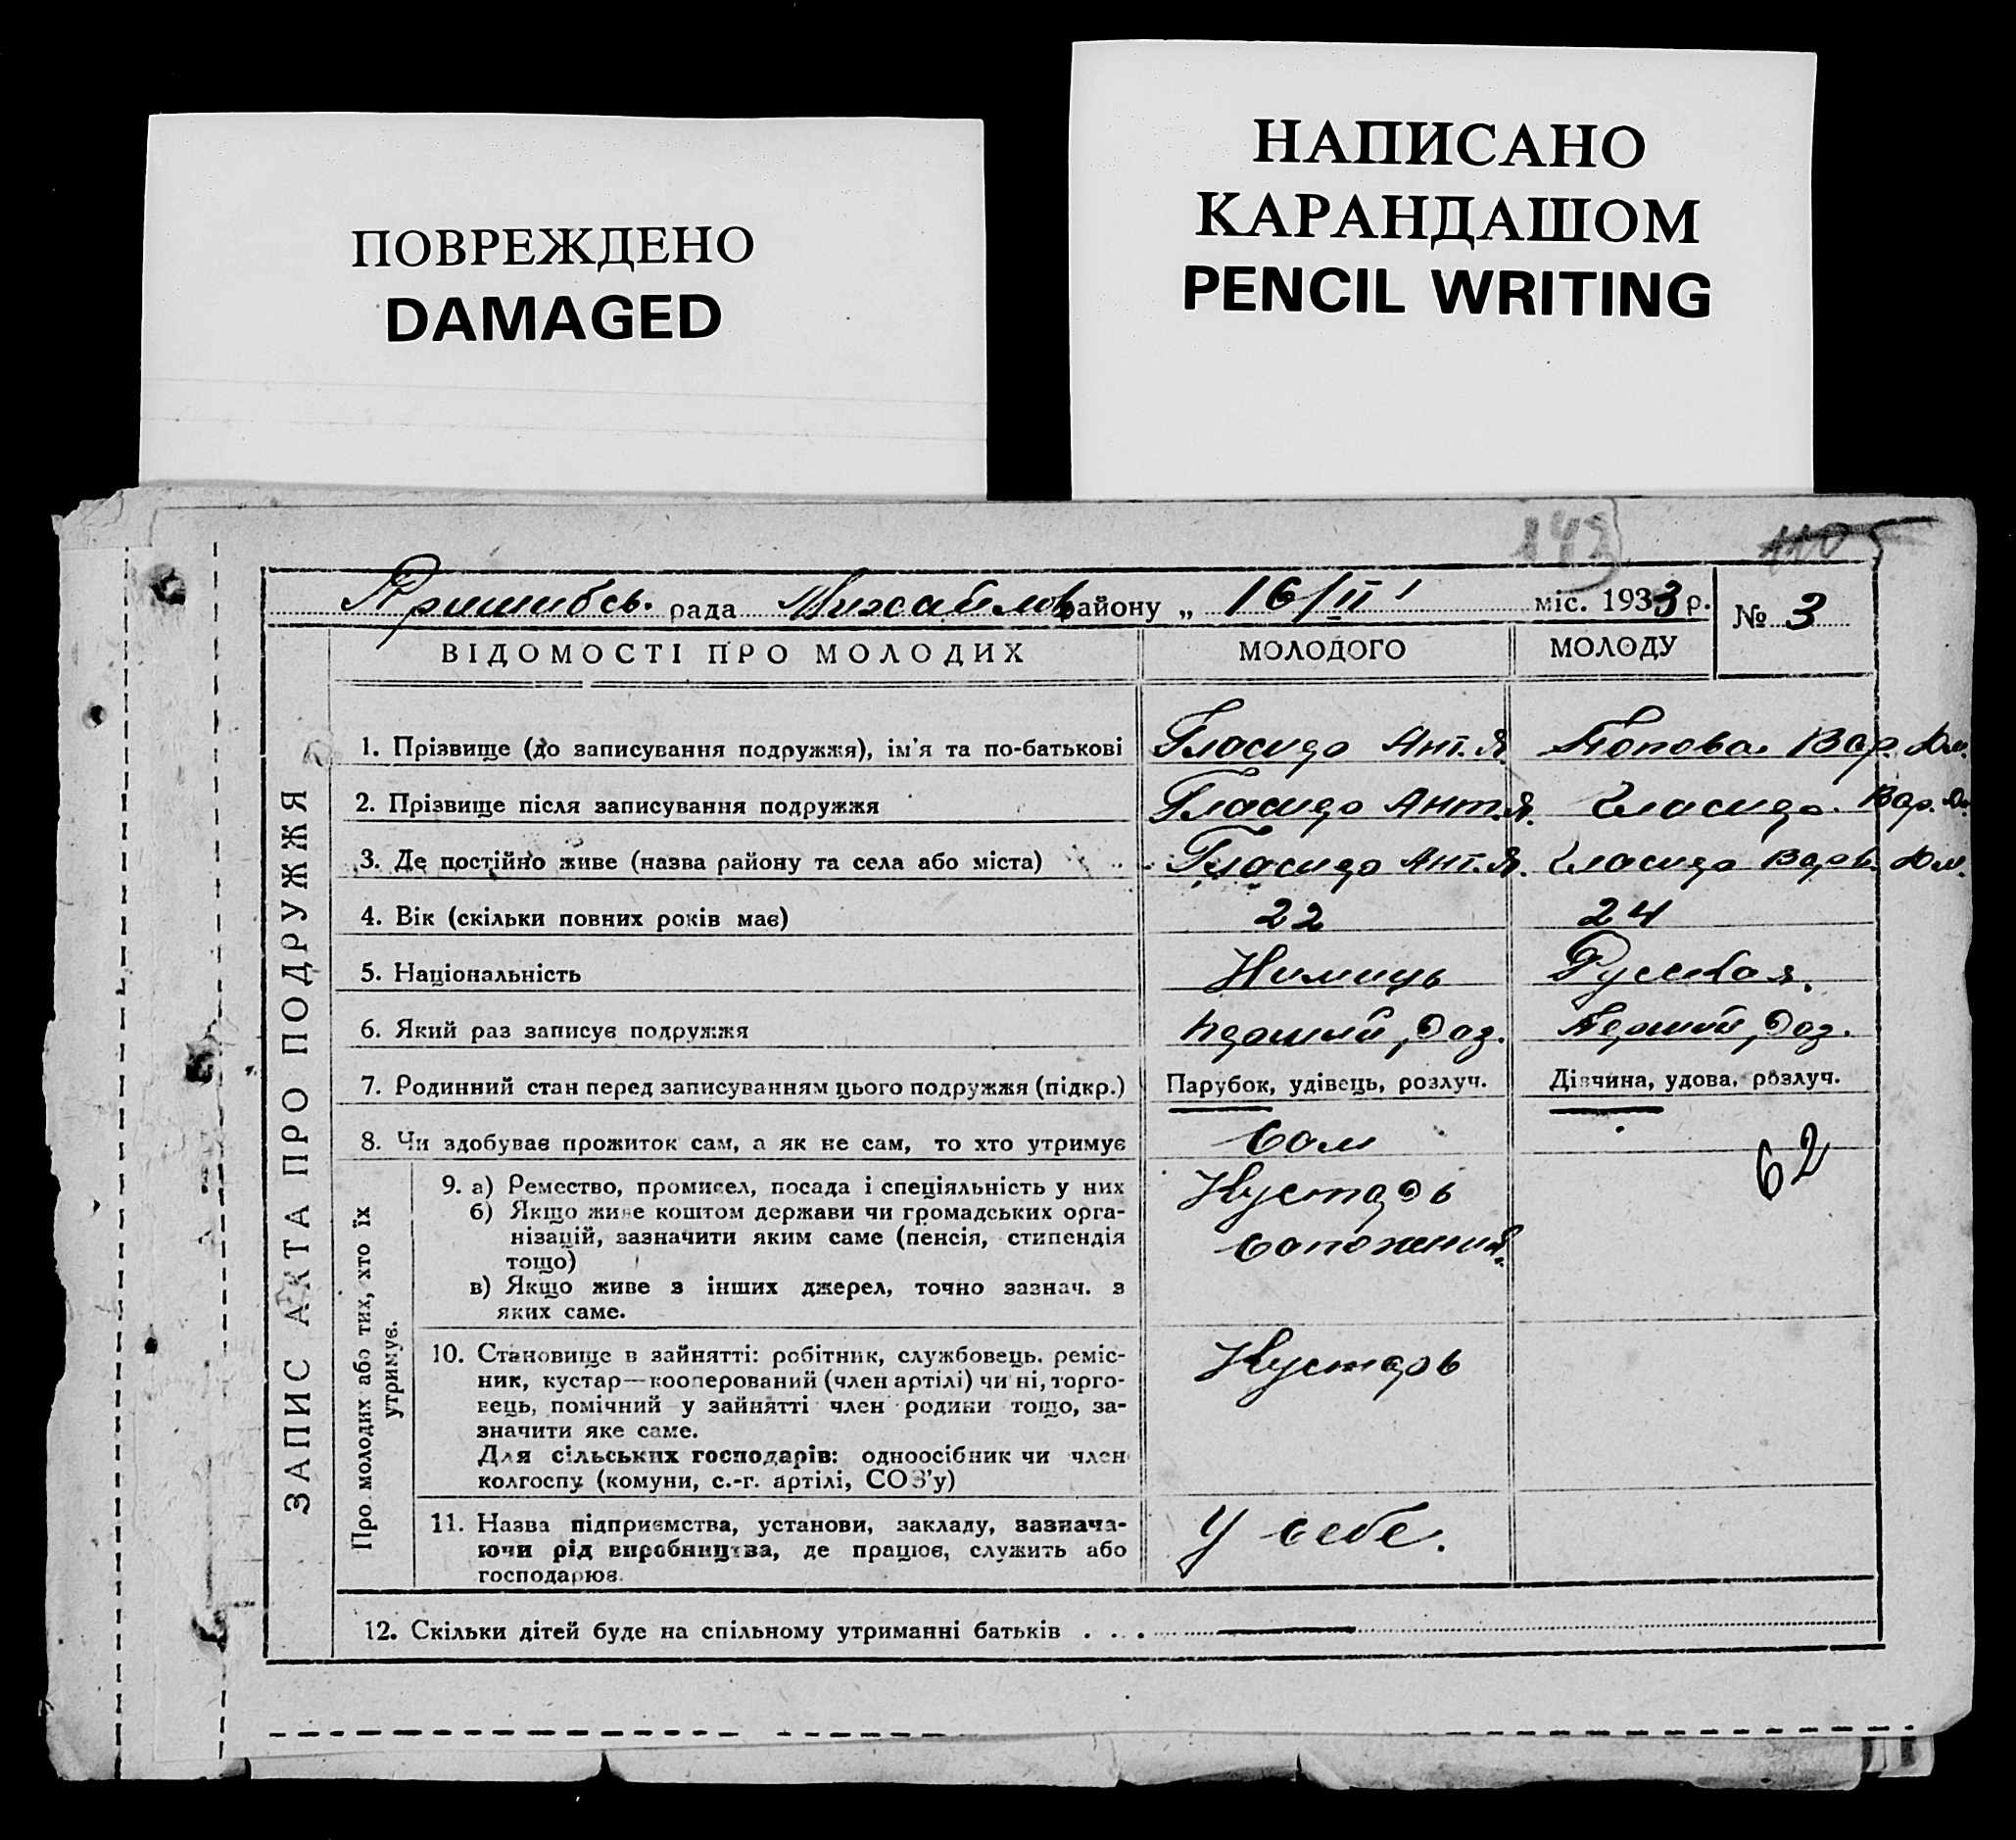 ПОВРЕЖДЕНО
DAMAGED
НАПИСАНО
КАРАНДАШОМ
PENCIL WRITING
143 110
Пришибсь. рада Михайлов району „ 16/II міс. 1933 р. № 3
ВІДОМОСТІ ПРО МОЛОДИХ МОЛОДОГО МОЛОДУ
ЗАПИС АКТА ПРО ПОДРУЖЖЯ
1. Прізвище (до записування подружжя), ім'я та по-батькові Гласидо Ант. Я. Попова Вар. Дм.
2. Прізвище після записування подружжя Гласидо Ант. Я. Гласидо Вар. Дм.
3. Де постійно живе (назва району та села або міста) Гласидо Ант. Я. Гласидо Варв. Дм.
4. Вік (скільки повних років має) 22 24
5. Національність Нимиць Русская.
6. Який раз записує подружжя Раз. Раз.
7. Родинний стан перед записуванням цього подружжя (підкр.) Парубок, удівець, розлуч. Дівчина, удова, розлуч.
8. Чи здобуває прожиток сам, а як не сам, то хто утримує Сам
62
Про молодих або тих, хто їх
утримує.
9. а) Ремество, промисел, посада і спеціяльність у них Кустарь
б) Якщо живе коштом держави чи громадських орга-
нізацій, зазначити яким саме (пенсія, стипендія
тощо)
в) Якщо живе з інших джерел, точно зазнач. з
яких саме.
10. Становище в зайнятті: робітник, службовець, реміс- Кустарь
ник, кустар—кооперований (член артілі) чи ні, торго-
вець, помічний у зайнятті член родини тощо, за-
значити яке саме.
Для сільських господарів: одноосібник чи член
колгоспу (комуни, с.-г. артілі, СОЗ'у)
11. Назва підприємства, установи, закладу, зазнача- У себе.
ючи рід виробництва, де працює, служить або
господарює.
12. Скільки дітей буде на спільному утриманні батьків . . .